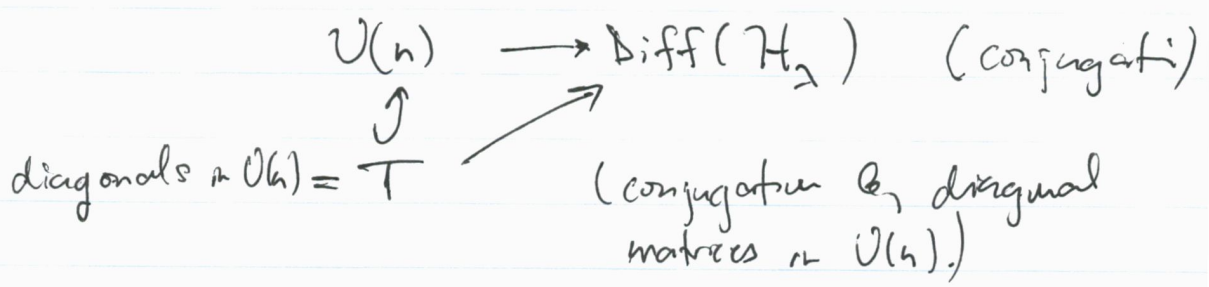 U(n) → Diff(H_λ) (conjugati)
diagonals in U(n) = T (conjugation by diagonal
matrices in U(n).)